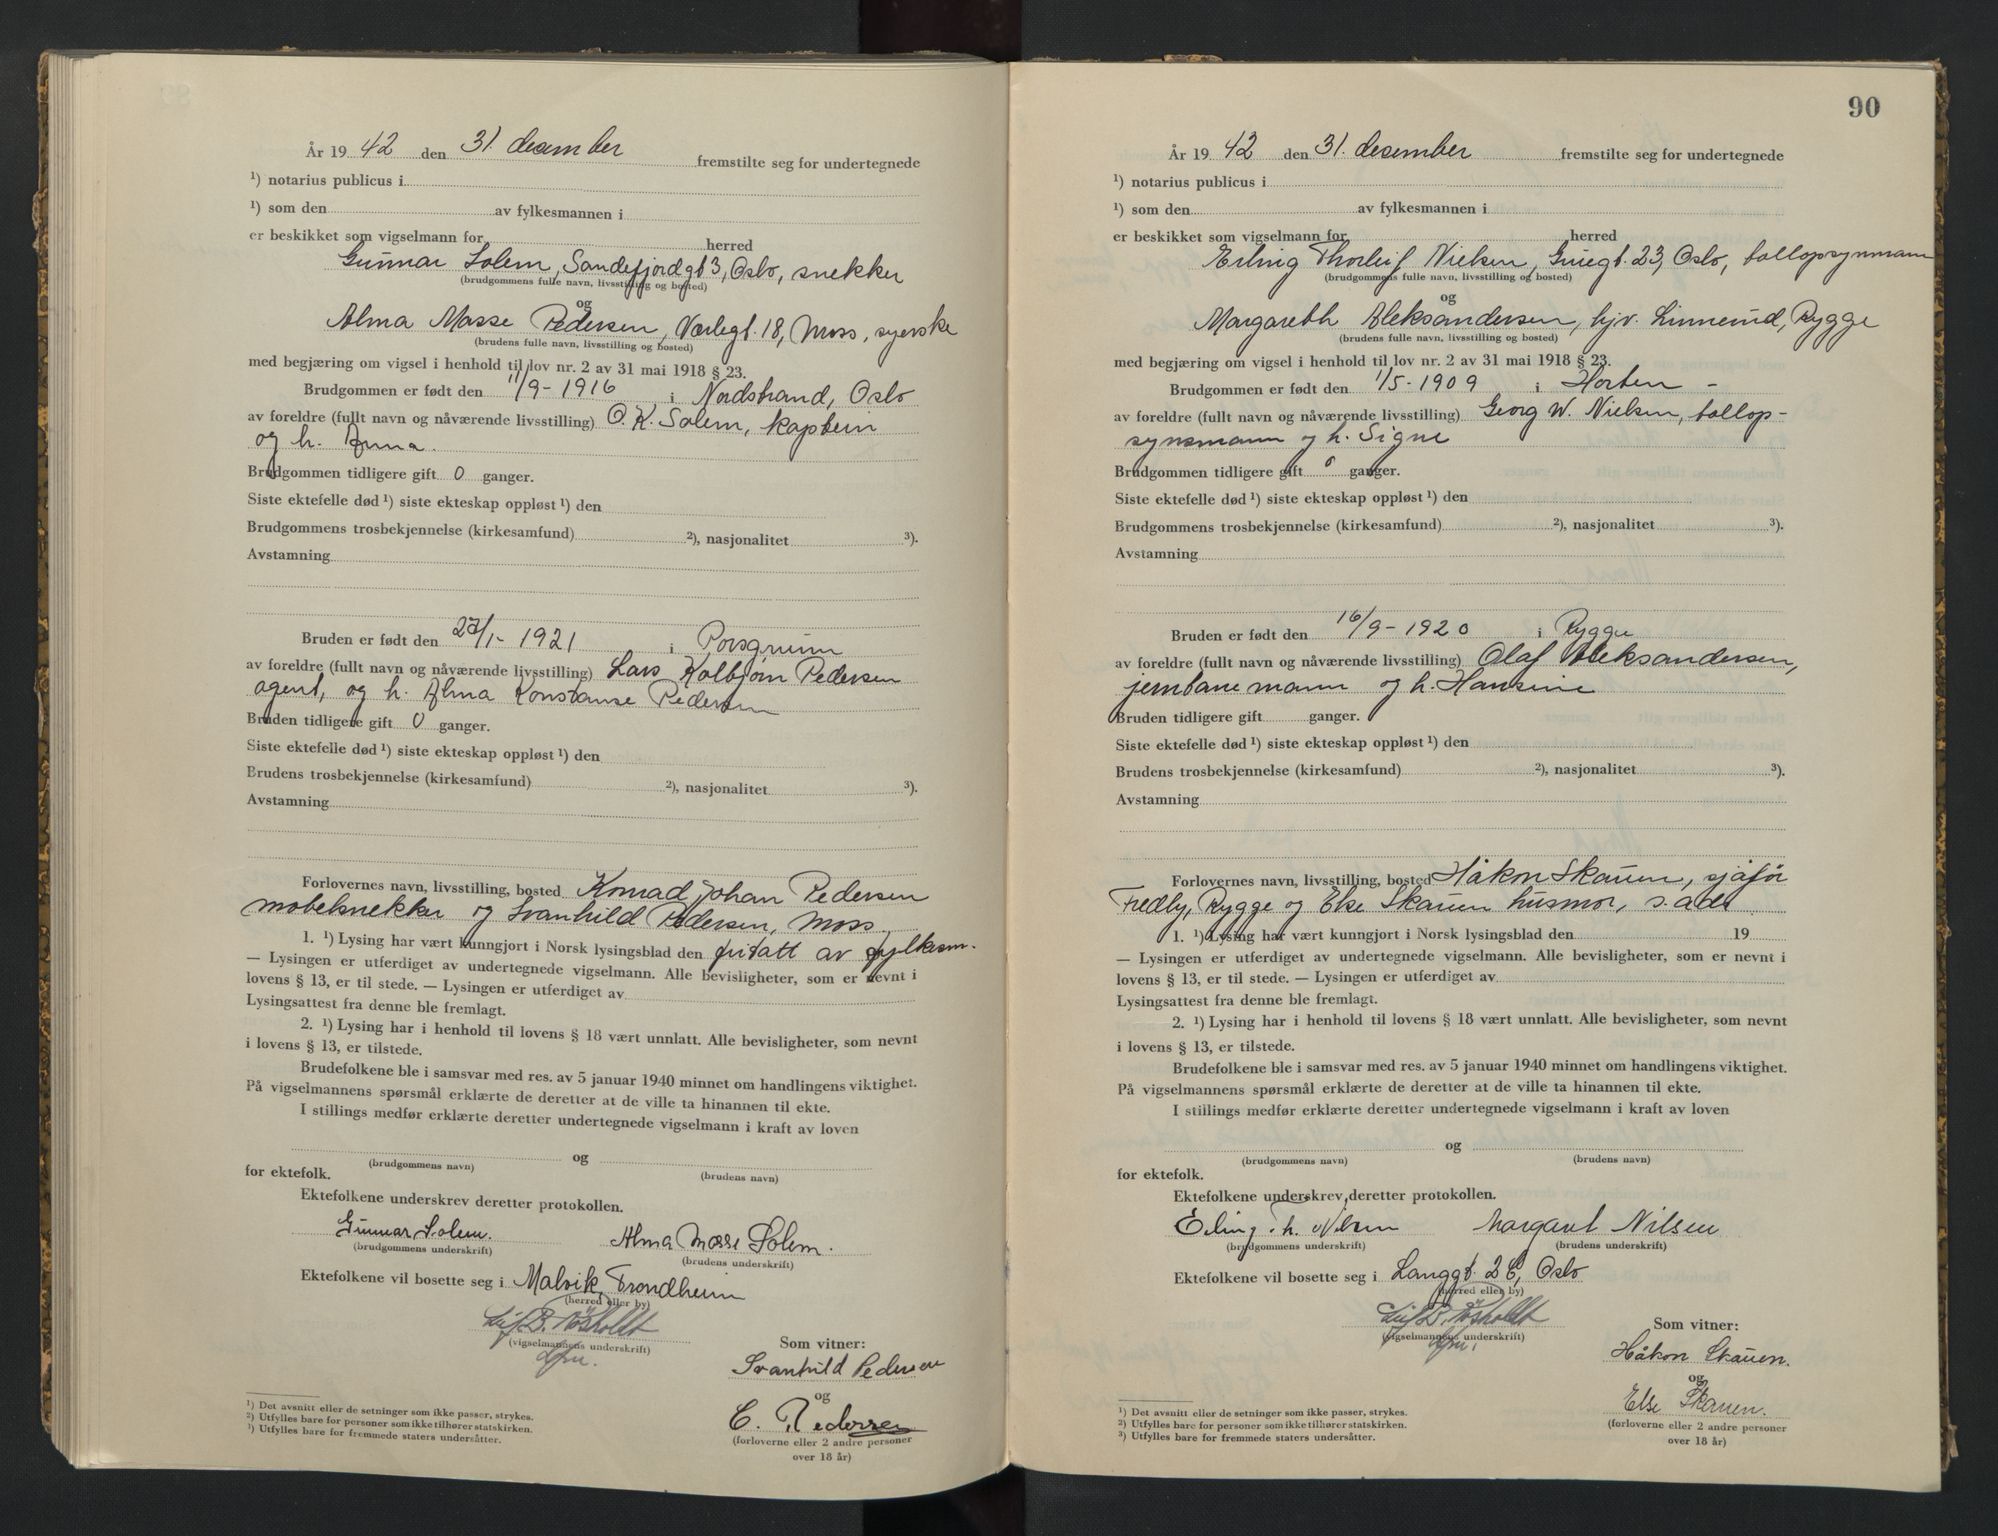 År 19 42 den 31. desember fremstilte seg for undertegnede
¹) notarius publicus i
¹) som den av fylkesmannen i
er beskikket som vigselmann for herred
Gunnar Solem, Sandefjordgt 3, Oslo, snekker
(brudgommens fulle navn, livsstilling og bosted)
og
Alma Masse Pedersen, Værlegt. 18, Moss, syerske
(brudens fulle navn, livsstilling og bosted)
med begjæring om vigsel i henhold til lov nr. 2 av 31 mai 1918 § 23.
Brudgommen er født den 11/9 - 1916 i Nordstrand, Oslo
av foreldre (fullt navn og nåværende livsstilling) O. K. Solem, kaptein
og h. Anna.
Brudgommen tidligere gift 0 ganger.
Siste ektefelle død ¹) siste ekteskap oppløst ¹) den
Brudgommens trosbekjennelse (kirkesamfund) ²), nasjonalitet ³).
Avstamning
Bruden er født den /1 - 1921 i Porsgrunn
av foreldre (fullt navn og nåværende livsstilling) Lars Kolbjørn Pedersen
agent, og h. Alma Konstanse Pedersen
Bruden tidligere gift 0 ganger.
Siste ektefelle død ¹) siste ekteskap oppløst ¹) den
Brudens trosbekjennelse (kirkesamfund) ²), nasjonalitet ³).
Avstamning
Forlovernes navn, livsstilling, bosted Konrad Johan Pedersen
møbelsnekker og Svanhild Pedersen, Moss
1. ¹) Lysing har vært kunngjort i Norsk lysingsblad den fritatt av fylkesm.
— Lysingen er utferdiget av undertegnede vigselmann. Alle bevisligheter, som er nevnt i
lovens § 13, er til stede. — Lysingen er utferdiget av
Lysingsattest fra denne ble fremlagt.
2. ¹) Lysing har i henhold til lovens § 18 vært unnlatt. Alle bevisligheter, som nevnt
i lovens § 13, er tilstede.
Brudefolkene ble i samsvar med res. av 5 januar 1940 minnet om handlingens viktighet.
På vigselmannens spørsmål erklærte de deretter at de ville ta hinannen til ekte.
I stillings medfør erklærte deretter undertegnede vigselmann i kraft av loven
og
(brudgommens navn) (brudens navn)
for ektefolk.
Ektefolkene underskrev deretter protokollen.
Gunnar Solem. Alma Masse Solem.
(brudgommens underskrift) (brudens underskrift)
Ektefolkene vil bosette seg i Malvik, Trondheim
(herred eller by)
(vigselmannens underskrift)
Som vitner:
Svanhild Pedersen
og
C. Pedersen
(forloverne eller 2 andre personer
over 18 år)
¹) Det avsnitt eller de setninger som ikke passer, strykes.
²) Utfylles bare for personer som ikke tilhører statskirken.
³) Utfylles bare for fremmede staters undersåtter.
90
År 19 42 den 31. desember fremstilte seg for undertegnede
¹) notarius publicus i
¹) som den av fylkesmannen i
er beskikket som vigselmann for herred
Erling Thorleif Nielsen, Griegt. 23, Oslo, tollopsynmann
(brudgommens fulle navn, livsstilling og bosted)
og
Margareth Aleksandersen, hjv. Linnerud, Rygge
(brudens fulle navn, livsstilling og bosted)
med begjæring om vigsel i henhold til lov nr. 2 av 31 mai 1918 § 23.
Brudgommen er født den 1/5 - 1909 i Horten -
av foreldre (fullt navn og nåværende livsstilling) Georg W. Nielsen, tollop-
synsmann og h. Signe
Brudgommen tidligere gift 0 ganger.
Siste ektefelle død ¹) siste ekteskap oppløst ¹) den
Brudgommens trosbekjennelse (kirkesamfund) ²), nasjonalitet ³).
Avstamning
Bruden er født den 16/9 - 1920 i Rygge
av foreldre (fullt navn og nåværende livsstilling) Olaf Aleksandersen,
jernbanemann og h. Hansine
Bruden tidligere gift ganger.
Siste ektefelle død ¹) siste ekteskap oppløst ¹) den
Brudens trosbekjennelse (kirkesamfund) ²), nasjonalitet ³).
Avstamning
Forlovernes navn, livsstilling, bosted Håkon Skauen, sjåfør
Fredly, Rygge og Else Skauen husmor, s. ads
1. ¹) Lysing har vært kunngjort i Norsk lysingsblad den 19
— Lysingen er utferdiget av undertegnede vigselmann. Alle bevisligheter, som er nevnt i
lovens § 13, er til stede. — Lysingen er utferdiget av
Lysingsattest fra denne ble fremlagt.
2. ¹) Lysing har i henhold til lovens § 18 vært unnlatt. Alle bevisligheter, som nevnt
i lovens § 13, er tilstede.
Brudefolkene ble i samsvar med res. av 5 januar 1940 minnet om handlingens viktighet.
På vigselmannens spørsmål erklærte de deretter at de ville ta hinannen til ekte.
I stillings medfør erklærte deretter undertegnede vigselmann i kraft av loven
og
(brudgommens navn) (brudens navn)
for ektefolk.
Ektefolkene underskrev deretter protokollen.
Erling Th. Nilsen Margaret Nilsen
(brudgommens underskrift) (brudens underskrift)
Ektefolkene vil bosette seg i Langgt. Oslo
(herred eller by)
(vigselmannens underskrift)
Som vitner:
Håkon Skauen.
og
Else Skauen.
(forloverne eller 2 andre personer
over 18 år)
¹) Det avsnitt eller de setninger som ikke passer, strykes.
²) Utfylles bare for personer som ikke tilhører statskirken.
³) Utfylles bare for fremmede staters undersåtter.